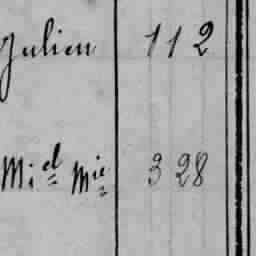 Julien 112
Mⁱᵉˡ Mⁱᵉ 328